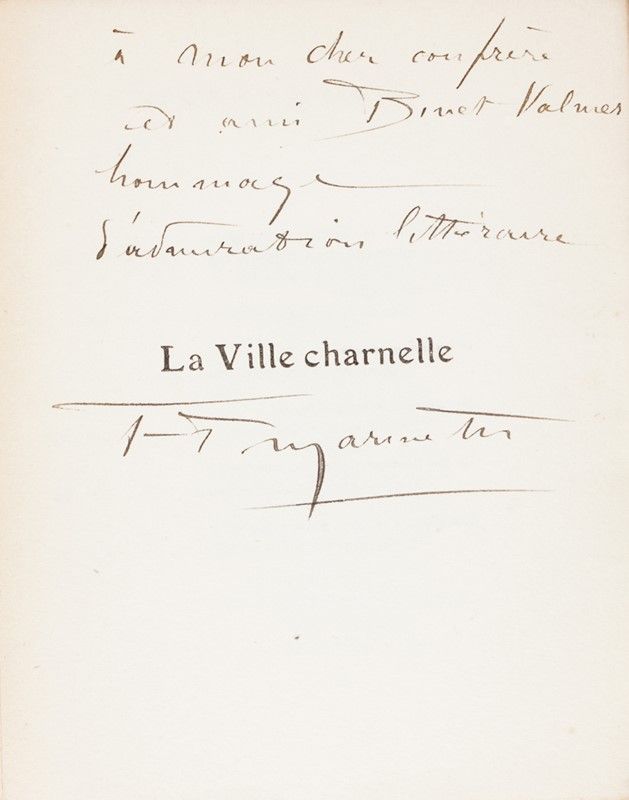 à mon cher confrère
et ami Binet Valmer
hommage
d'admiration littéraire
La Ville charnelle
F T Marinetti